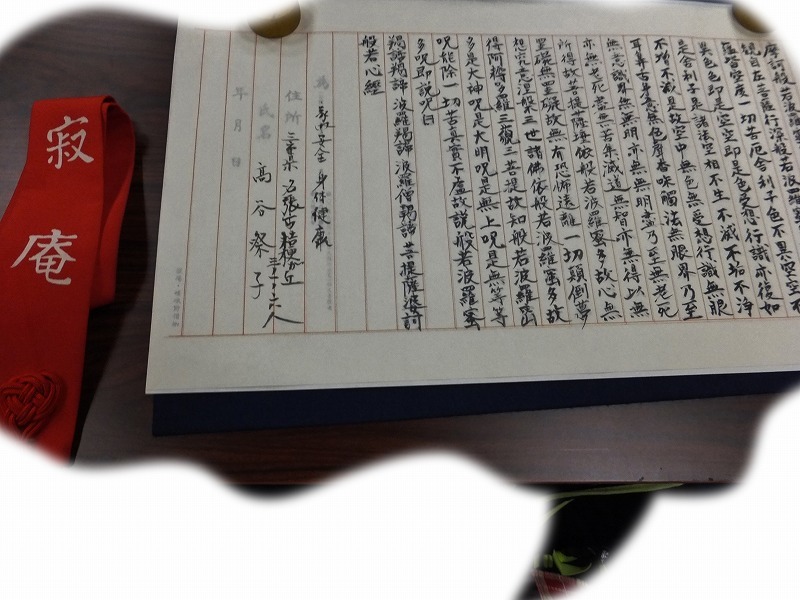 摩訶般若波羅蜜
観自在菩薩行深般若波羅蜜
蘊皆空度一切苦厄舎利子色不異空空不
異色色即是空空即是色受想行識亦復如
是舎利子是諸法空相不生不滅不垢不浄
不増不減是故空中無色無受想行識無眼
耳鼻舌身意無色声香味觸法無眼界乃至
無意識界無無明亦無無明盡乃至無老死
亦無老死盡無苦集滅道無智亦無得以無
所得故菩提薩埵依般若波羅蜜多故心無
罣礙無罣礙故無有恐怖遠離一切顛倒夢
想究竟涅槃三世諸佛依般若波羅蜜多故
得阿耨多羅三藐三菩提故知般若波羅蜜
多是大神呪是大明呪是無上呪是無等等
呪能除一切苦真實不虚故説般若波羅蜜
多呪即説呪曰
羯諦羯諦波羅羯諦波羅僧羯諦菩提薩婆訶
般若心經
為 安全 身体健康
住所 三重県名張市桔梗が丘
氏名 高谷 子
年月日
寂庵